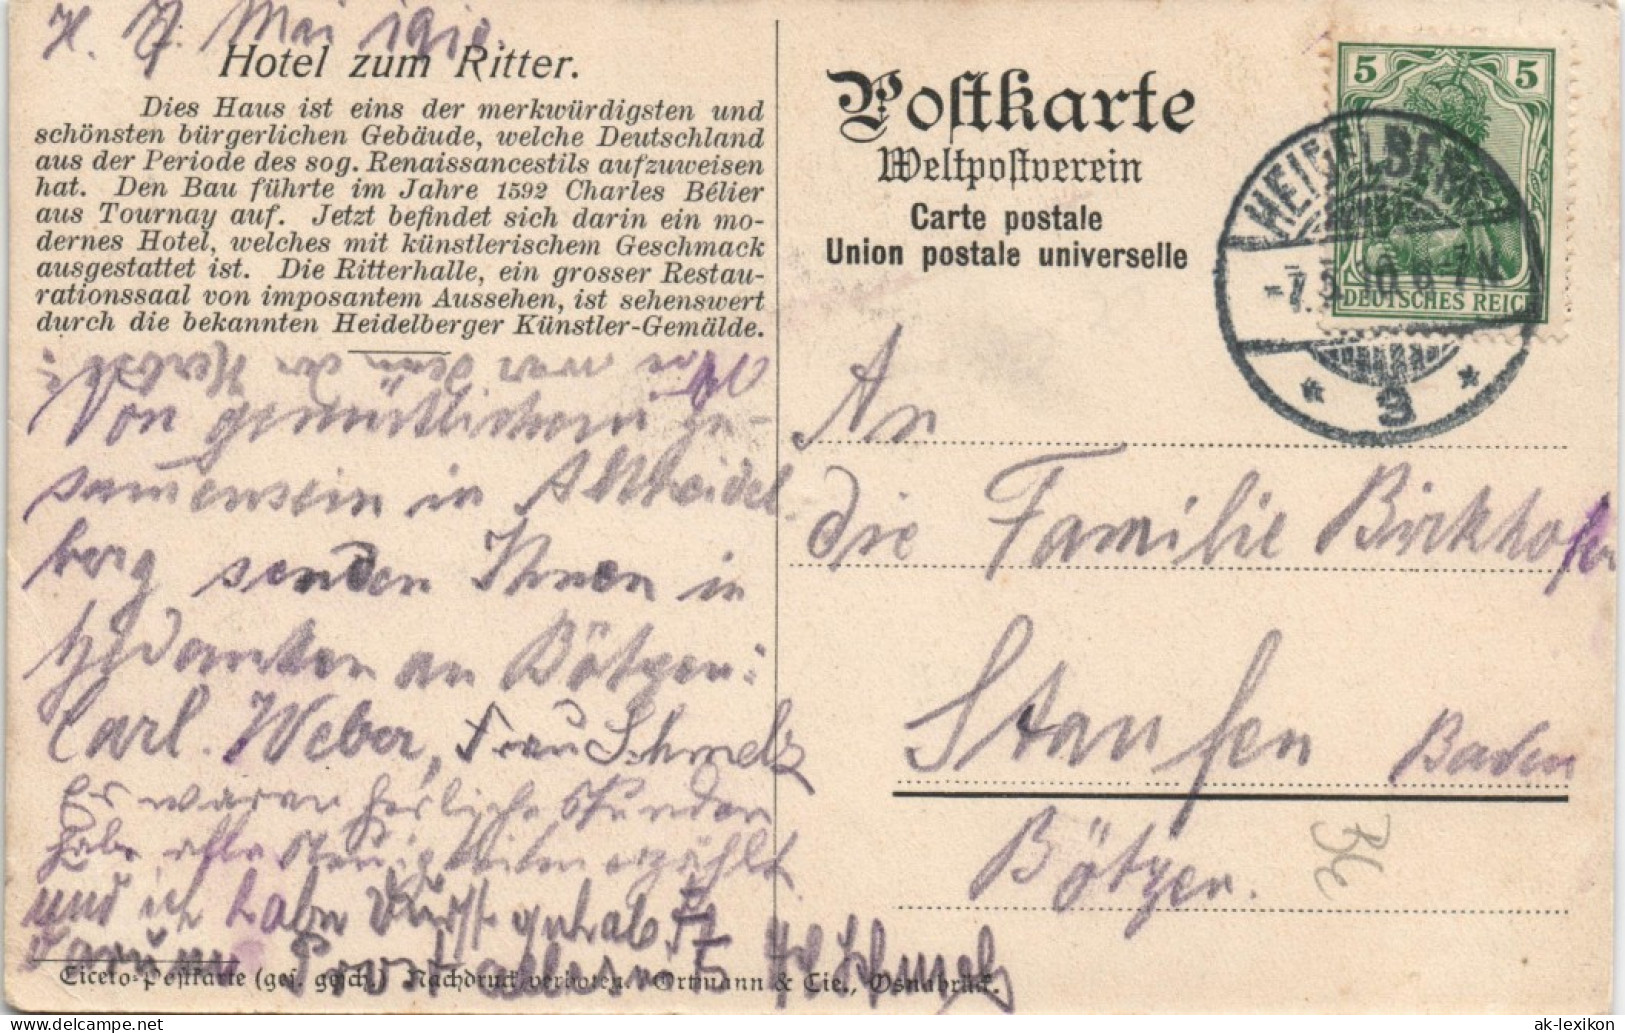 H. 7. Mai 1910.
Hotel zum Ritter.
Dies Haus ist eins der merkwürdigsten und
schönsten bürgerlichen Gebäude, welche Deutschland
aus der Periode des sog. Renaissancestils aufzuweisen
hat. Den Bau führte im Jahre 1592 Charles Bélier
aus Tournay auf. Jetzt befindet sich darin ein mo-
dernes Hotel, welches mit künstlerischem Geschmack
ausgestattet ist. Die Ritterhalle, ein grosser Restau-
rationssaal von imposantem Aussehen, ist sehenswert
durch die bekannten Heidelberger Künstler-Gemälde.
war denn der Herbst?
Von gemütlichem Zu-
samensein in Altheidel-
berg senden Ihnen in
Gedanken an Bötzen:
Carl. Weber, Frau Schmelz
Es waren herliche Stunden
habe alle Neuigkeiten erzählt
und ich habe Durst gehabt
darum Prost allerseits
Schmelz
Eiceto-Postkarte (ges. gesch.) Nachdruck verboten. Ortmann & Cie., Osnabrück.
Postkarte
Weltpostverein
Carte postale
Union postale universelle
5 5
DEUTSCHES REICH
HEIDELBERG
-7.5.10.6-7N.
* 3 *
An
die Familie Birkhofer
Staufen Baden
Bötzen.
ak-lexikon